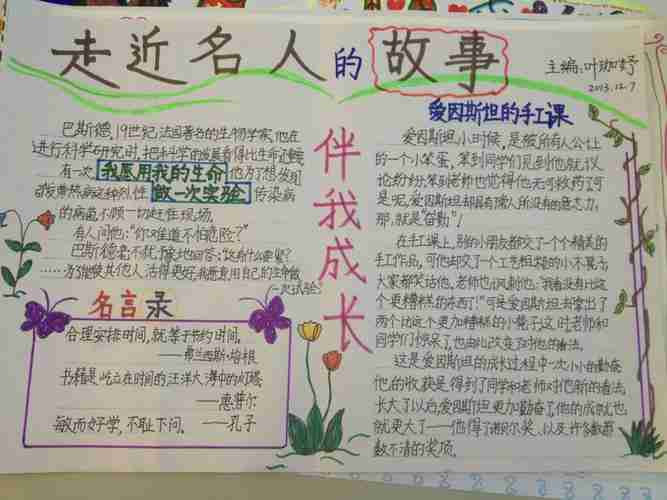 走近名人的故事
主编:叶珈妤
2013.12.7
巴斯德,19世纪,法国著名的生物学家,他在
进行科学研究时,把科学的发展看得比生命还重要
有一次,我愿用我的生命 他为了想发现
黄热病这种烈性 做一次实验 传染病
的病菌不顾一切赶往现场。
有人问他:"你难道不怕危险?"
巴斯德毫不犹豫地回答:
……为了能使其他人活得更好,我愿意用自己的生命做
一次试验
名言录
合理安排时间,就等于节约时间。
——弗兰西斯·培根
书籍是屹立在时间的汪洋大海中的灯塔
——惠普尔
敏而好学,不耻下问。——孔子
伴我成长
爱因斯坦的手工课
爱因斯坦小时候,是被所有人公认
的一个小笨蛋,笨到同学们见到他就议
论纷纷,笨到老师也觉得他无可救药了可
是呢,爱因斯坦却拥有别人所没有的意志力,
那,就是"奋勤"!
在手工课上,别的小朋友都交了一个个精美的
手工作品,可他却交了一个工艺粗糙的小木凳子,
大家都笑话他,老师也讽刺他:"我看没有比这
个更糟糕的东西了!"可是爱因斯坦却拿出了
两个比这个更加糟糕的小凳子这时老师和
同学们惊呆了,也由此改变了对他的看法。
这是爱因斯坦的成长过程中一次小小的勤奋
他的收获是得到了同学和老师对他新的看法,
长大了以后,爱因斯坦更加勤奋了,他的成就也
就更大了——他得了诺贝尔奖、以及许多数都
数不清的奖项。